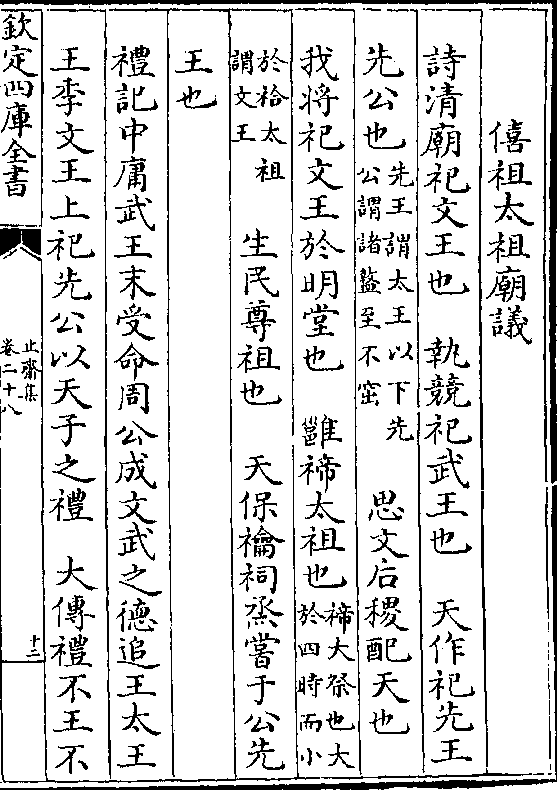 僖祖太祖廟議
詩清廟祀文王也　執競祀武王也　天作祀先王
先公也先王謂太王以下先公謂諸盩至不窋　思文后稷配天也
我將祀文王於明堂也　雝禘太祖也禘大祭也大於四時而小
於祫太祖謂文王　生民尊祖也　天保禴祠烝嘗于公先
王也
禮記中庸武王末受命周公成文武之德追王太王
王季文王上祀先公以天子之禮　大傳禮不王不
欽定四庫全書
止齋集
卷二十八
十二